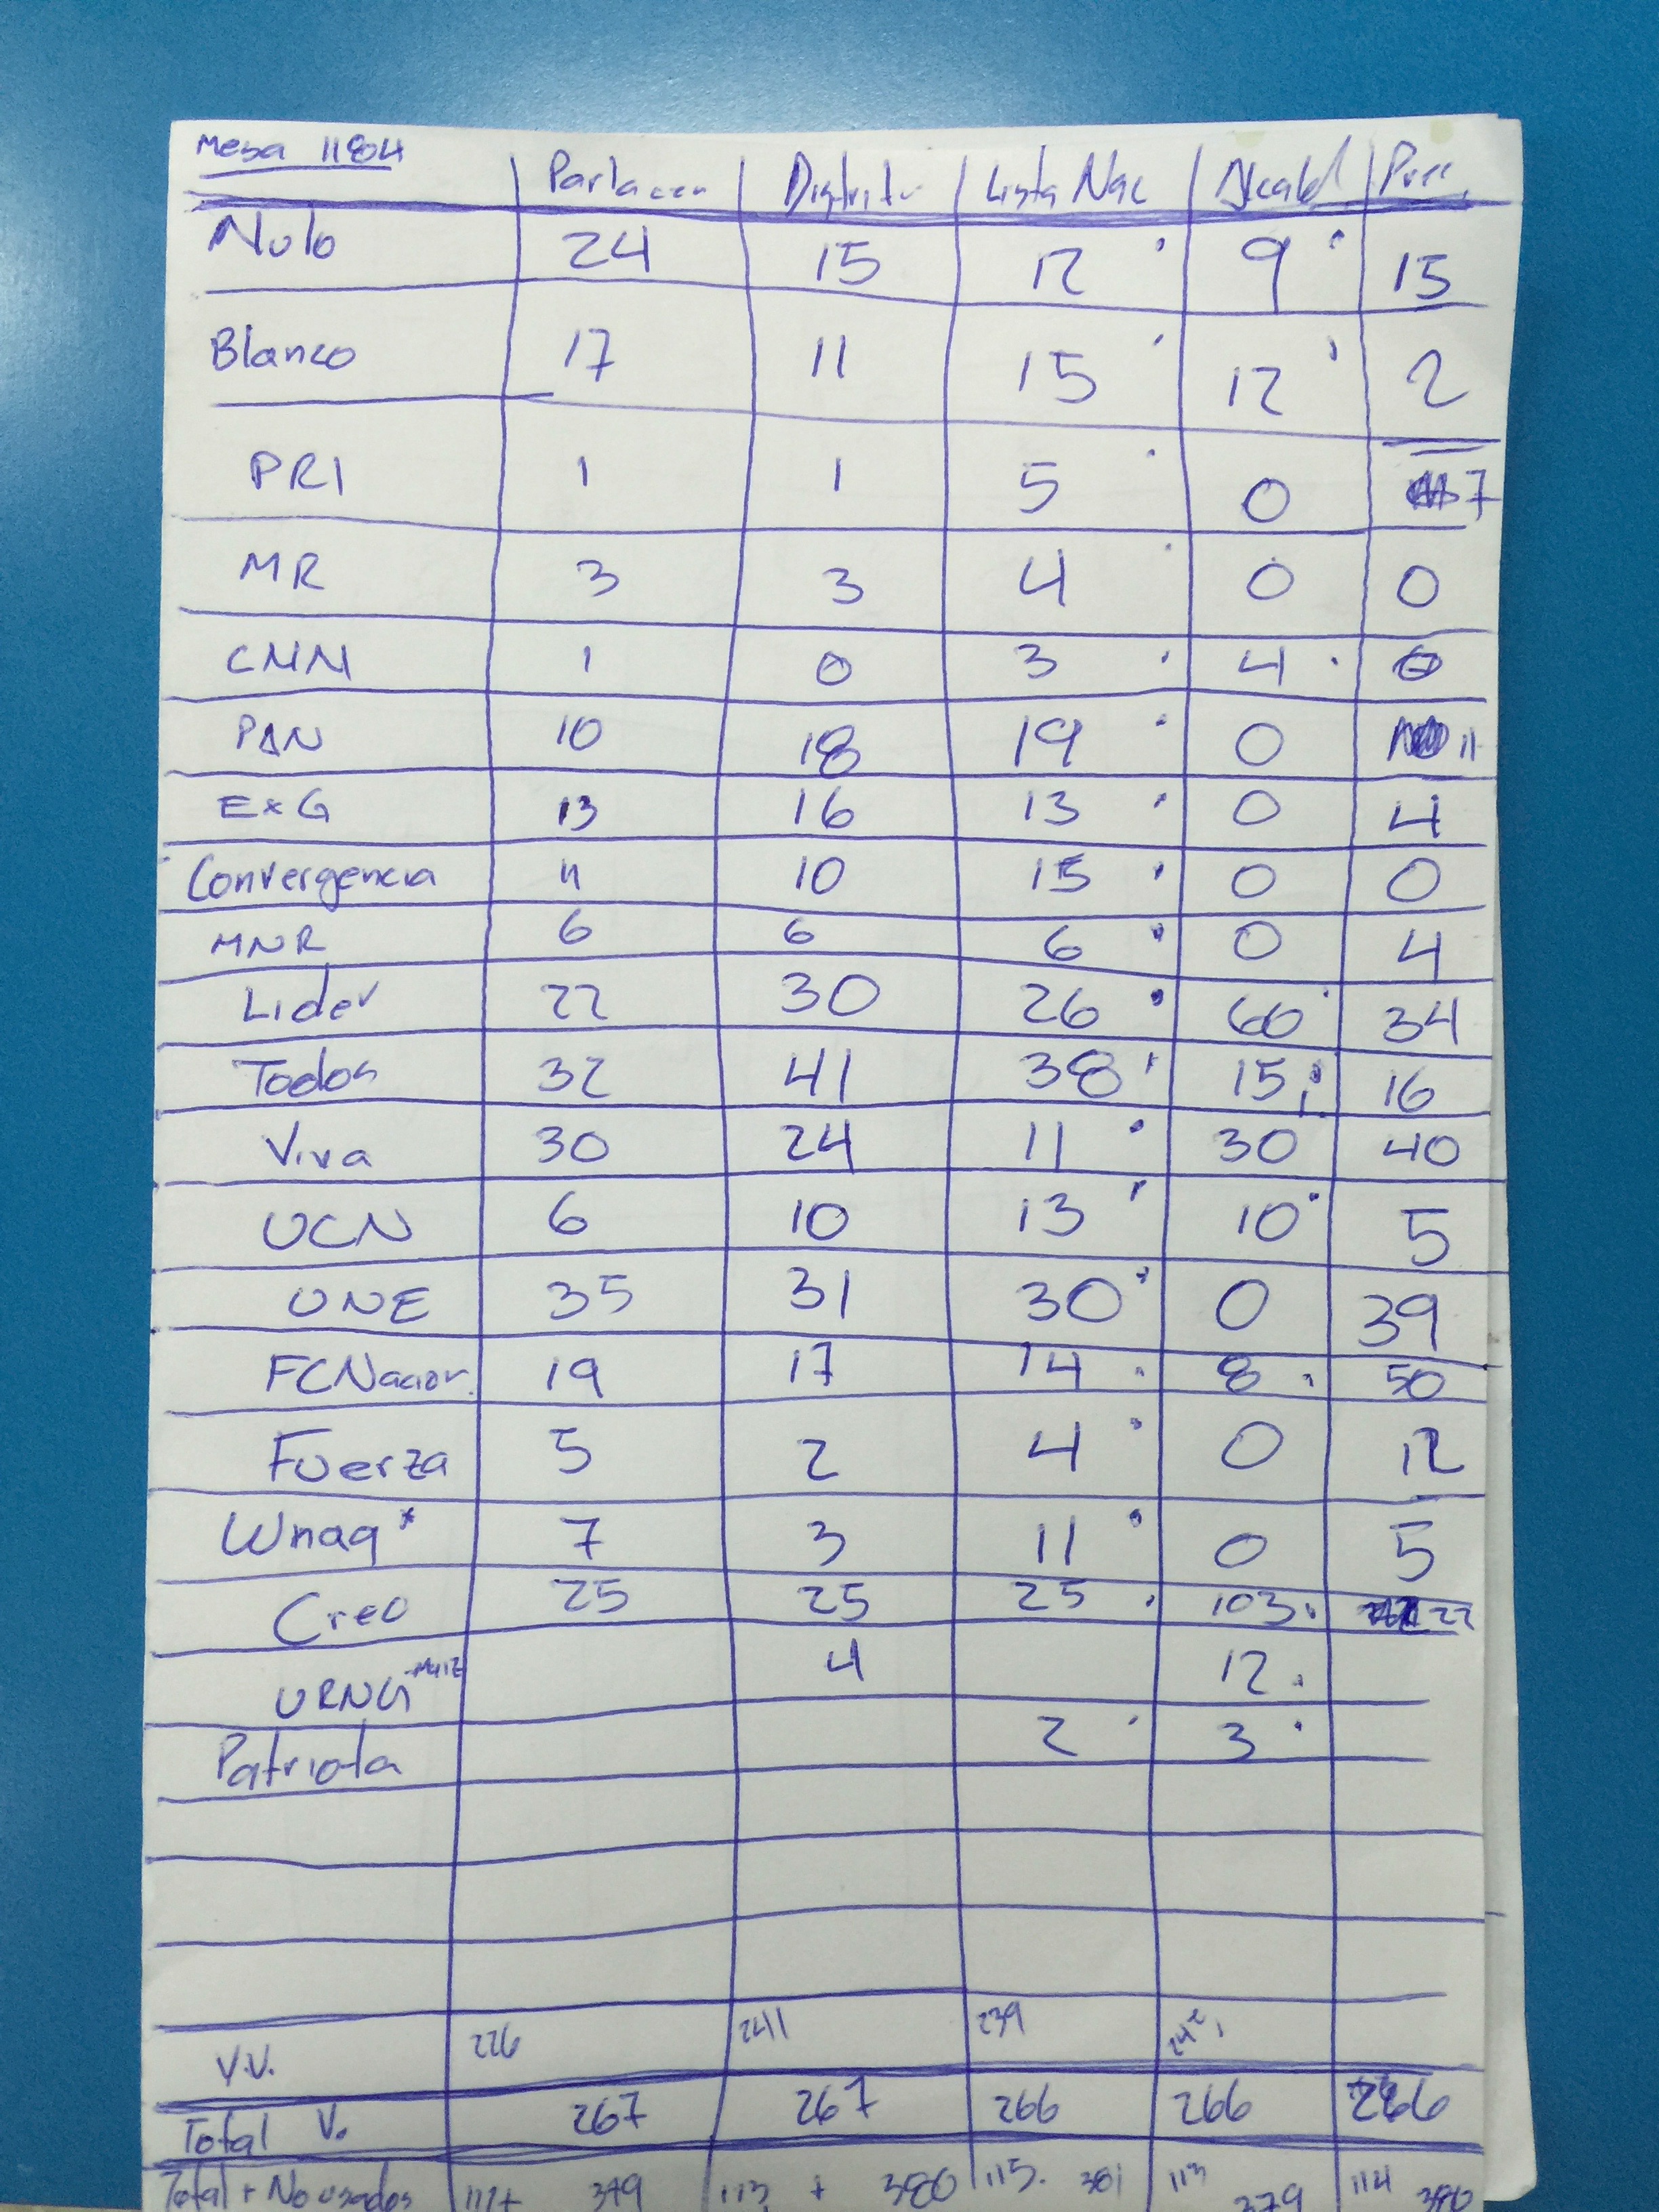 Mesa 11804
Parlacen Distrito Lista Nac Alcald Pres.
Nulo 24 15 12 9 15
Blanco 17 11 15 12 2
PRI 1 1 5 0 7
MR 3 3 4 0 0
CNN 1 0 3 4 0
PAN 10 18 19 0 11
ExG 13 16 13 0 4
Convergencia 11 10 15 0 0
MNR 6 6 6 0 4
Lider 22 30 26 60 34
Todos 32 41 38 15 16
Viva 30 24 11 30 40
UCN 6 10 13 10 5
UNE 35 31 30 0 39
FCNacion. 19 17 14 8 50
Fuerza 5 2 4 0 12
Wnaq* 7 3 11 0 5
Creo 25 25 25 103 22
URNG-Maiz 4 12
Patriota 2 3
V.V. 226 241 239 242
Total V. 267 267 266 266 266
Total + No usados 112+ 379 113 + 380 115. 381 113 379 114 380